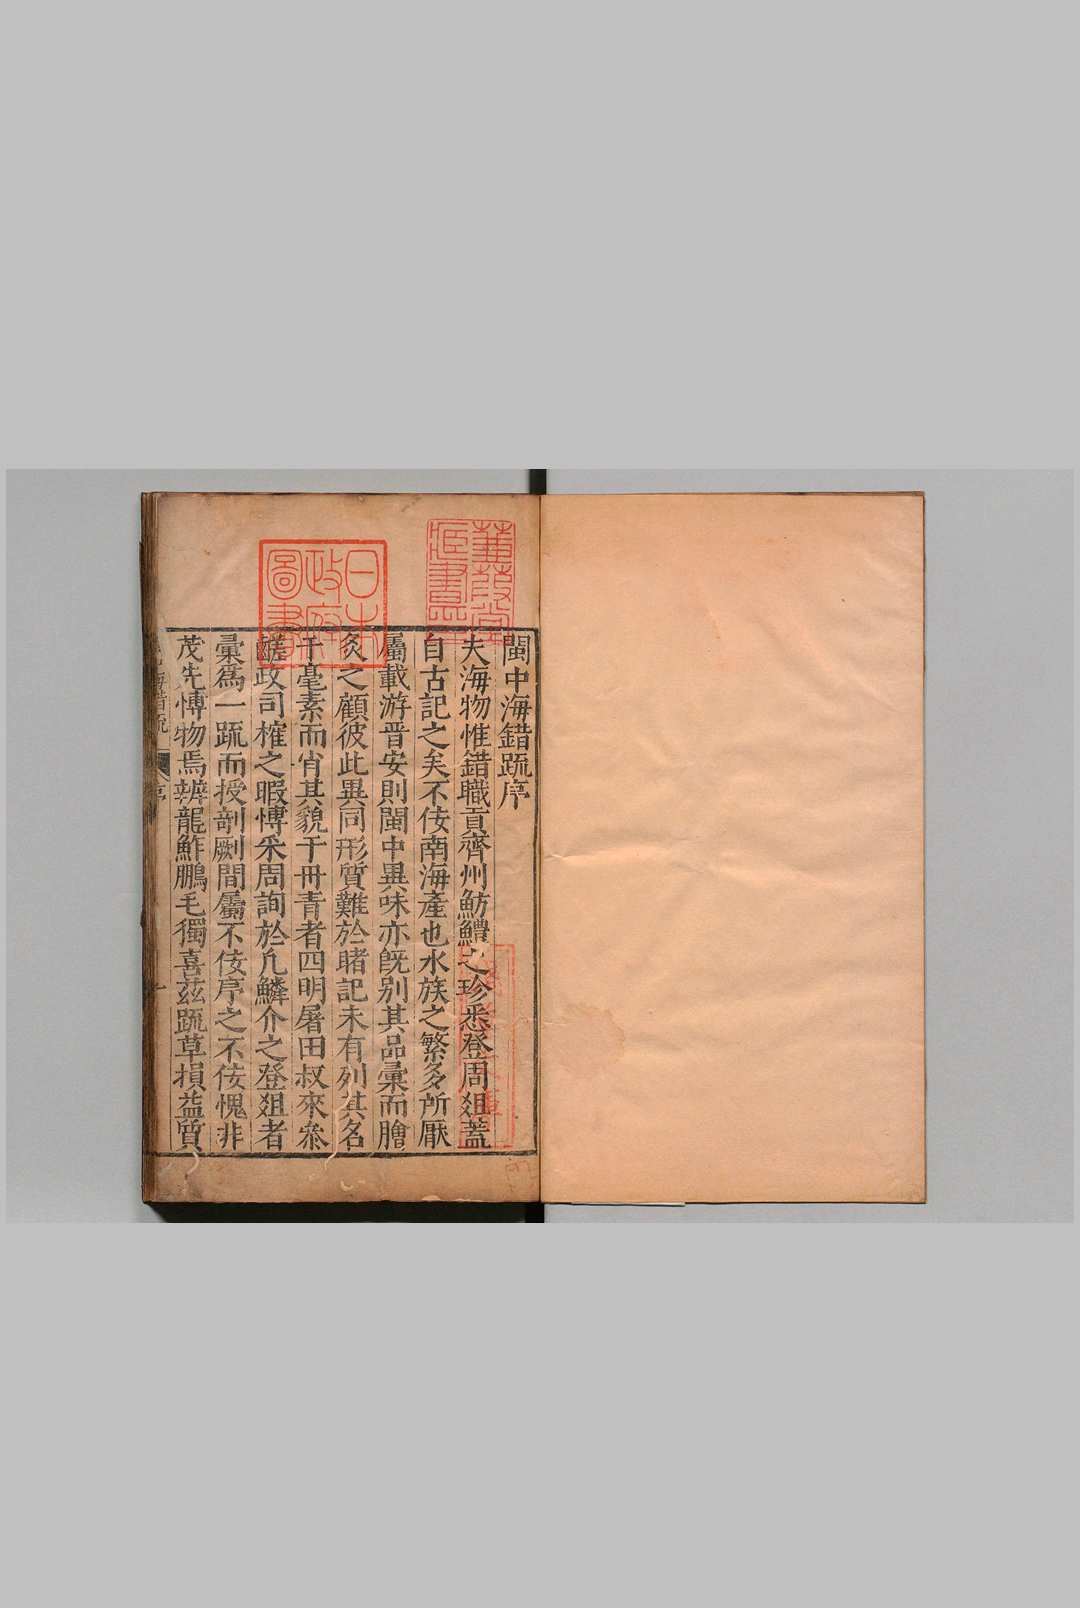 閩中海錯䟽序
夫海物惟錯職貢齊州魴鱧之珍悉登周爼蓋
自古記之矣不佞南海產也水族之繁多所厭
屬載游晋安則閩中異味亦旣别其品彙而膾
炙之顧彼此異同形質難於睹記未有列其名
于毫素而肖其貌于冊青者四明屠田叔來叅
鹺政司榷之暇愽釆周詢於凢鱗介之登爼者
彙爲一䟽而授剞劂間屬不佞序之不佞愧非
茂先愽物焉辨龍鮓鵬毛獨喜兹䟽草損益質
海錯䟽
序
一
蒹葭堂
藏書印
日本
政府
圖書